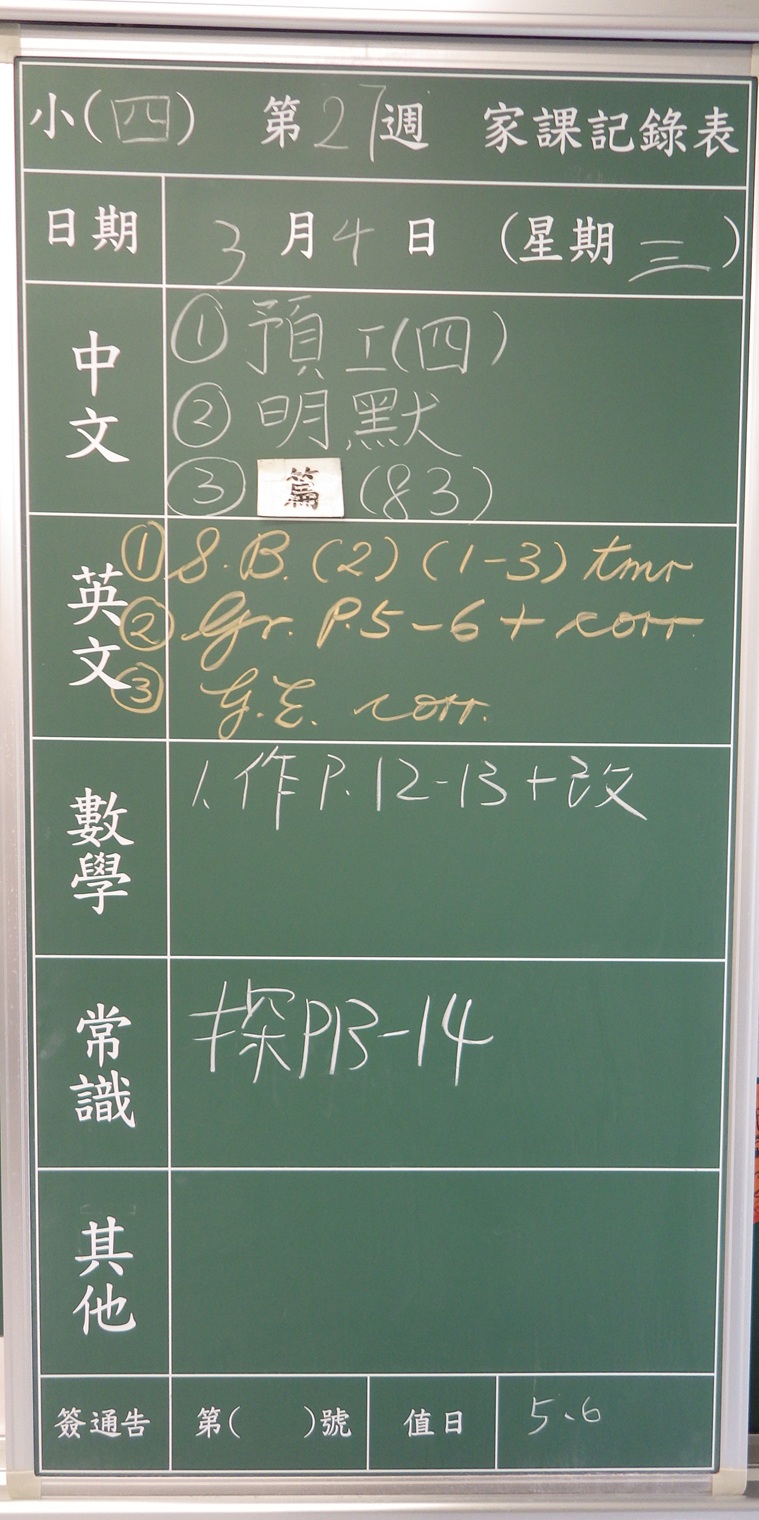 小(四) 第27週 家課記錄表
日期 3月4日 (星期三)
中文
① 預工(四)
② 明默
③ 篇 (83)
英文
① S.B. (2) (1-3) tmr
② Gr. P.5-6 + corr.
③ G.E. corr.
數學
1. 作P.12-13+改
常識
探P13-14
其他
簽通告 第( )號 值日 5、6